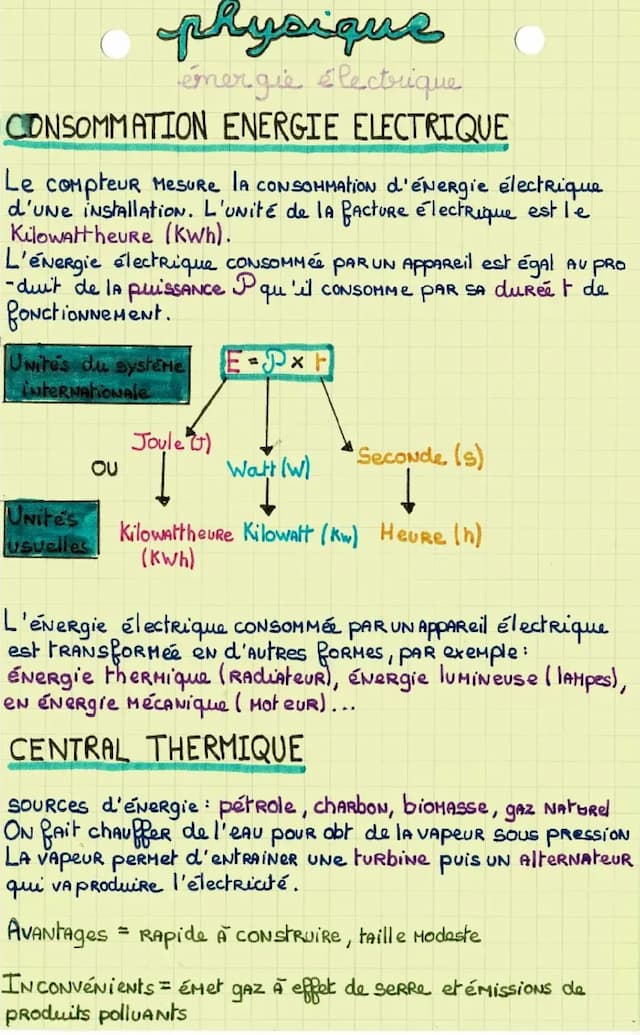 physique
énergie électrique
CONSOMMATION ENERGIE ELECTRIQUE
Le compteur mesure la consommation d'énergie électrique
d'une installation. L'unité de la facture électrique est le
Kilowattheure (KWh).
L'énergie électrique consommée par un appareil est égal au pro
-duit de la puissance P qu'il consomme par sa dureé t de
fonctionnement.
Unités du système
internationale
E = P x t
Joule (J)
Watt (W)
Seconde (s)
OU
Unités
usuelles
Kilowattheure
(KWh)
Kilowatt (Kw)
Heure (h)
L'énergie électrique consommée par un appareil électrique
est transformée en d'autres formes, par exemple :
énergie thermique (radiateur), énergie lumineuse (lampes),
en énergie mécanique (moteur) ...
CENTRAL THERMIQUE
sources d'énergie : pétrole, charbon, biomasse, gaz naturel
On fait chauffer de l'eau pour obt de la vapeur sous pression
La vapeur permet d'entrainer une turbine puis un alternateur
qui va produire l'électricité.
Avantages = rapide à construire, taille modeste
Inconvénients = émet gaz à effet de serre et émissions de
produits polluants